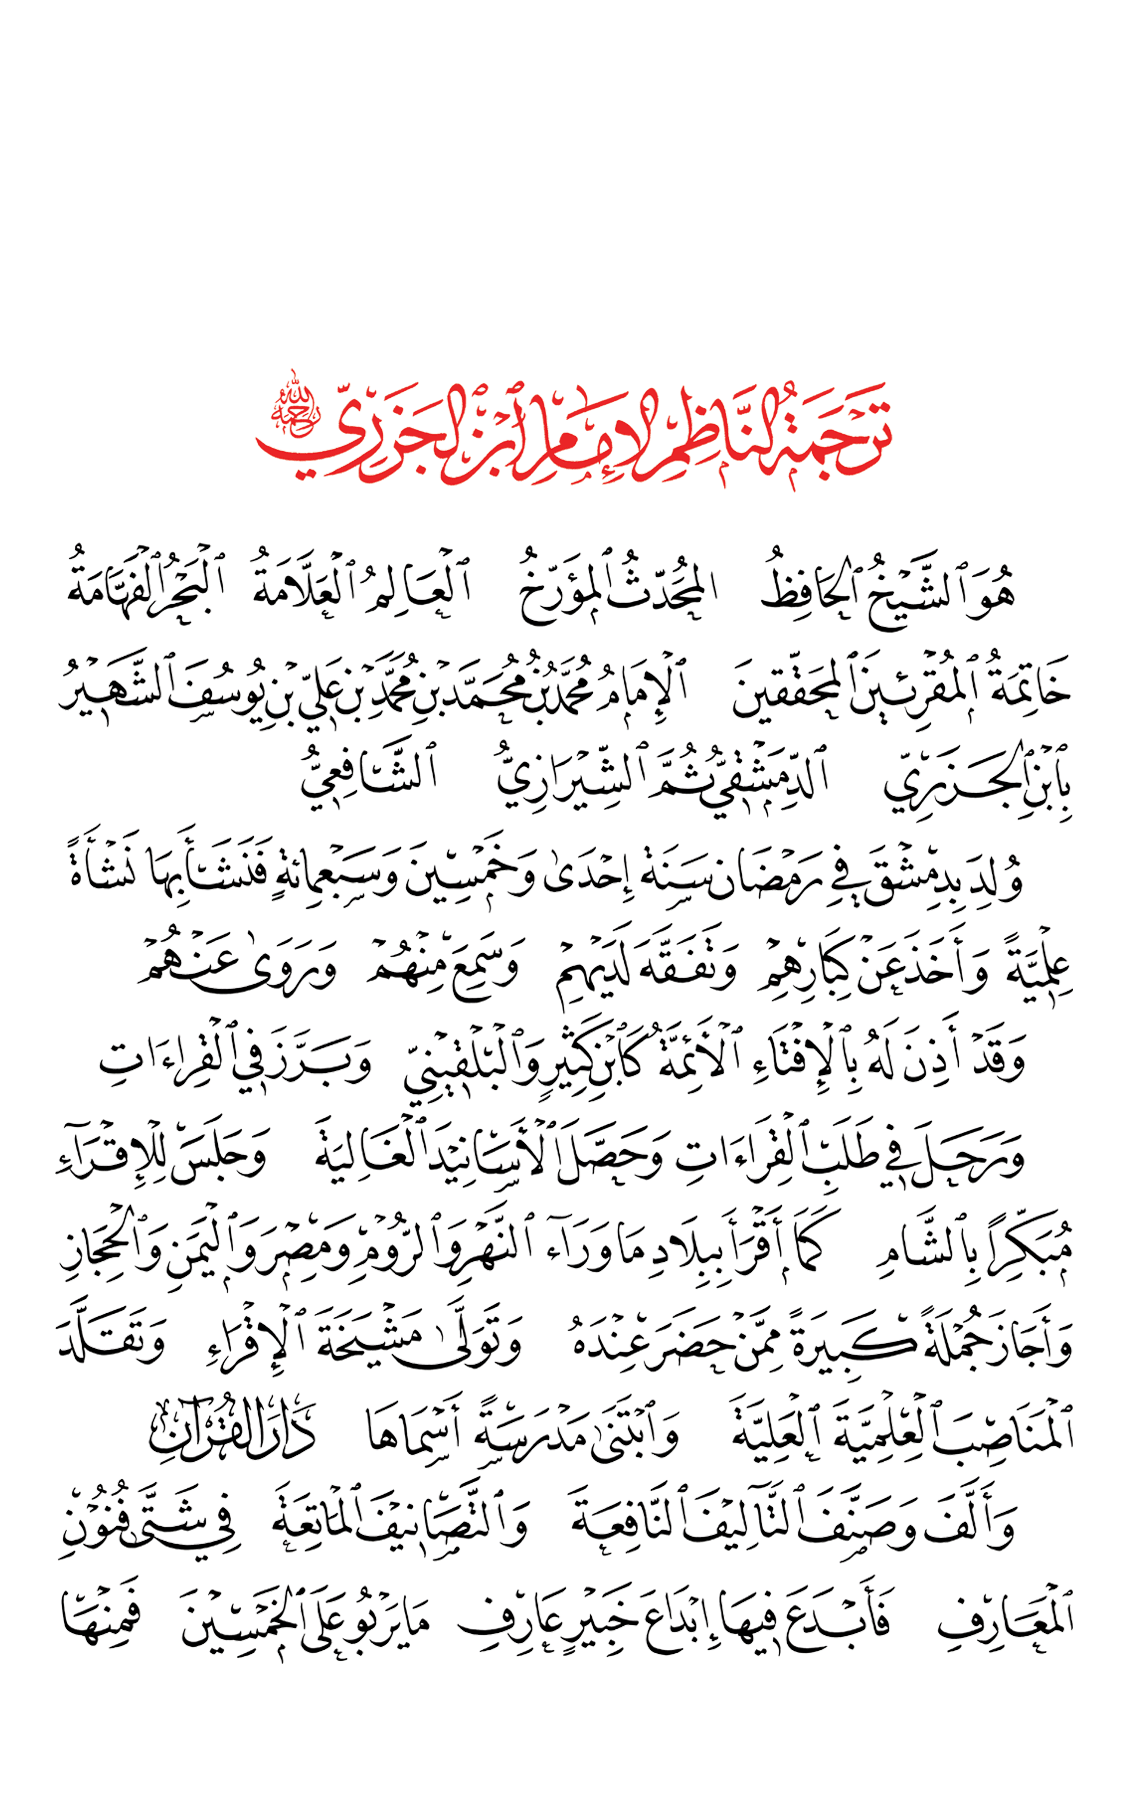 تَرْجَمَةُ النَّاظِمِ الإِمَامِ ٱبْنِ الجَزَرِيِّ رحمه الله
هُوَ ٱلشَّيْخُ ٱلْحَافِظُ المُحَدِّثُ ٱلْمُؤَرِّخُ ٱلْعَالِمُ ٱلْعَلَّامَةُ ٱلْبَحْرُ ٱلْفَهَّامَةُ
خَاتِمَةُ ٱلْمُقْرِئِينَ ٱلْمُحَقِّقِينَ ٱلْإِمَامُ مُحَمَّدُ بْنُ مُحَمَّدِ بْنِ مُحَمَّدِ بْنِ عَلِيِّ بْنِ يُوسُفَ ٱلشَّهِيرُ
بِٱبْنِ ٱلْجَزَرِيِّ ٱلدِّمَشْقِيُّ ثُمَّ ٱلشِّيرَازِيُّ ٱلشَّافِعِيُّ
وُلِدَ بِدِمِشْقَ فِي رَمْضَانَ سَنَةَ إِحْدَىٰ وَخَمْسِينَ وَسَبْعِمِائَةٍ فَنَشَأَ بِهَا نَشْأَةً
عِلْمِيَّةً وَأَخَذَ عَنْ كِبَارِهِمْ وَتَفَقَّهَ لَدَيْهِمْ وَسَمِعَ مِنْهُمْ وَرَوَىٰ عَنْهُمْ
وَقَدْ أَذِنَ لَهُ بِٱلْإِفْتَاءِ ٱلْأَئِمَّةُ كَٱبْنِ كَثِيرٍ وَٱلْبُلْقِينِيِّ وَبَرَّزَ فِي ٱلْقِرَاءَاتِ
وَرَحَلَ فِي طَلَبِ ٱلْقِرَاءَاتِ وَحَصَّلَ ٱلْأَسَانِيدَ ٱلْعَالِيَةَ وَجَلَسَ لِلْإِقْرَآءِ
مُبَكِّرًا بِٱلشَّامِ كَمَا أَقْرَأَ بِبِلَادِ مَا وَرَآءَ ٱلنَّهْرِ وَٱلرُّومِ وَمِصْرَ وَٱلْيَمَنِ وَٱلْحِجَازِ
وَأَجَازَ جُمْلَةً كَبِيرَةً مِمَّنْ حَضَرَ عِنْدَهُ وَتَوَلَّىٰ مَشْيَخَةَ ٱلْإِقْرَاءِ وَتَقَلَّدَ
ٱلْمَنَاصِبَ ٱلْعِلْمِيَّةَ ٱلْعَلِيَّةَ وَٱبْتَنَىٰ مَدْرَسَةً أَسْمَاهَا دَارَ القُرْآنِ
وَأَلَّفَ وَصَنَّفَ ٱلتَّآلِيفَ ٱلنَّافِعَةَ وَٱلتَّصَانِيفَ ٱلْمَاتِعَةَ فِي شَتَّىٰ فُنُونِ
ٱلْمَعَارِفِ فَأَبْدَعَ فِيهَا إِبْدَاعَ خَبِيرٍ عَارِفٍ مَا يَرْبُو عَلَى ٱلْخَمْسِينَ فَمِنْهَا